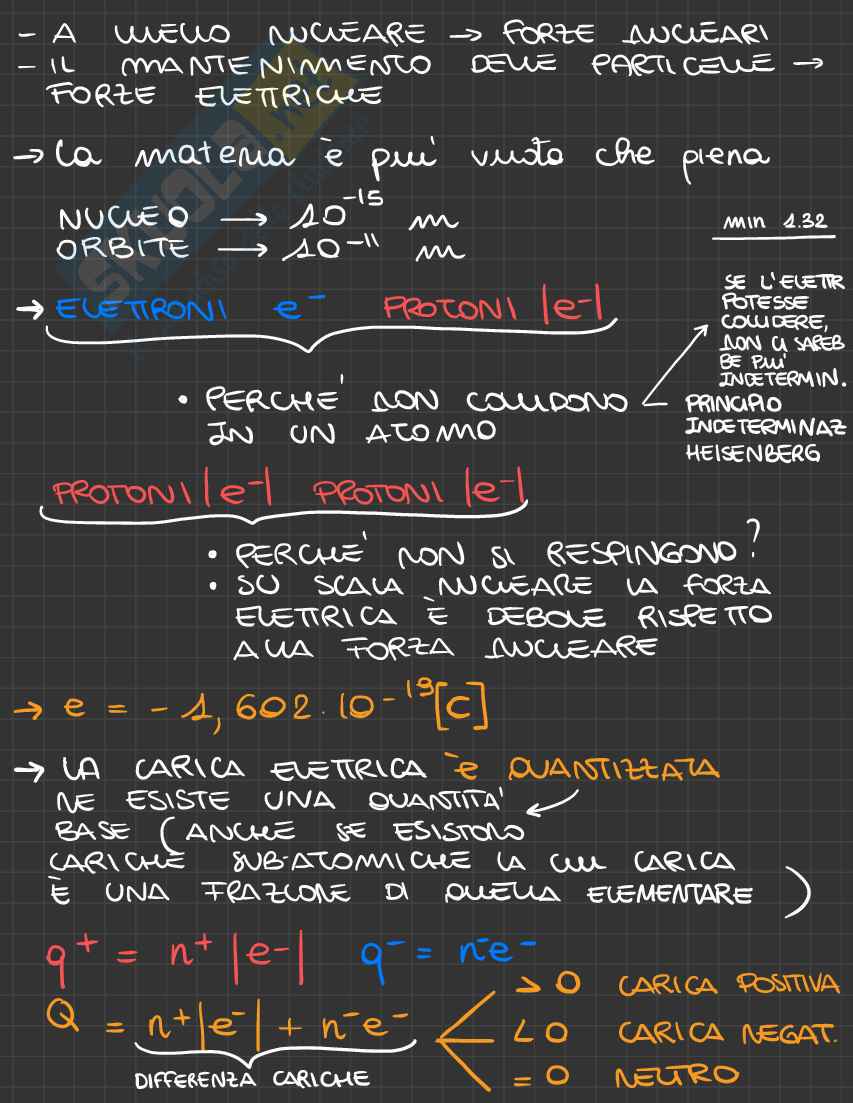 - A LIVELLO NUCLEARE → FORZE NUCLEARI
- IL MANTENIMENTO DELLE PARTICELLE →
FORZE ELETTRICHE
→ La materia è più vuota che piena
NUCLEO → 10^-15 m
ORBITE → 10^-11 m
min 1.32
→ ELETTRONI e^- PROTONI |e^-|
SE L'ELETTR
POTESSE
COLLIDERE,
NON CI SAREB
BE PIÙ
INDETERMIN.
• PERCHE' NON COLLIDONO
IN UN ATOMO
PRINCIPIO
INDETERMINAZ
HEISENBERG
PROTONI |e^-| PROTONI |e^-|
• PERCHE' NON SI RESPINGONO?
• SU SCALA NUCLEARE LA FORZA
ELETTRICA È DEBOLE RISPETTO
ALLA FORZA NUCLEARE
→ e = - 1,602 · 10^-19 [C]
→ LA CARICA ELETTRICA È QUANTIZZATA
NE ESISTE UNA QUANTITA'
BASE (ANCHE SE ESISTONO
CARICHE SUB-ATOMICHE LA CUI CARICA
È UNA FRAZIONE DI QUELLA ELEMENTARE)
q^+ = n^+ |e^-| q^- = n^- e^-
Q = n^+ |e^-| + n^- e^-
> 0 CARICA POSITIVA
< 0 CARICA NEGAT.
= 0 NEUTRO
DIFFERENZA CARICHE